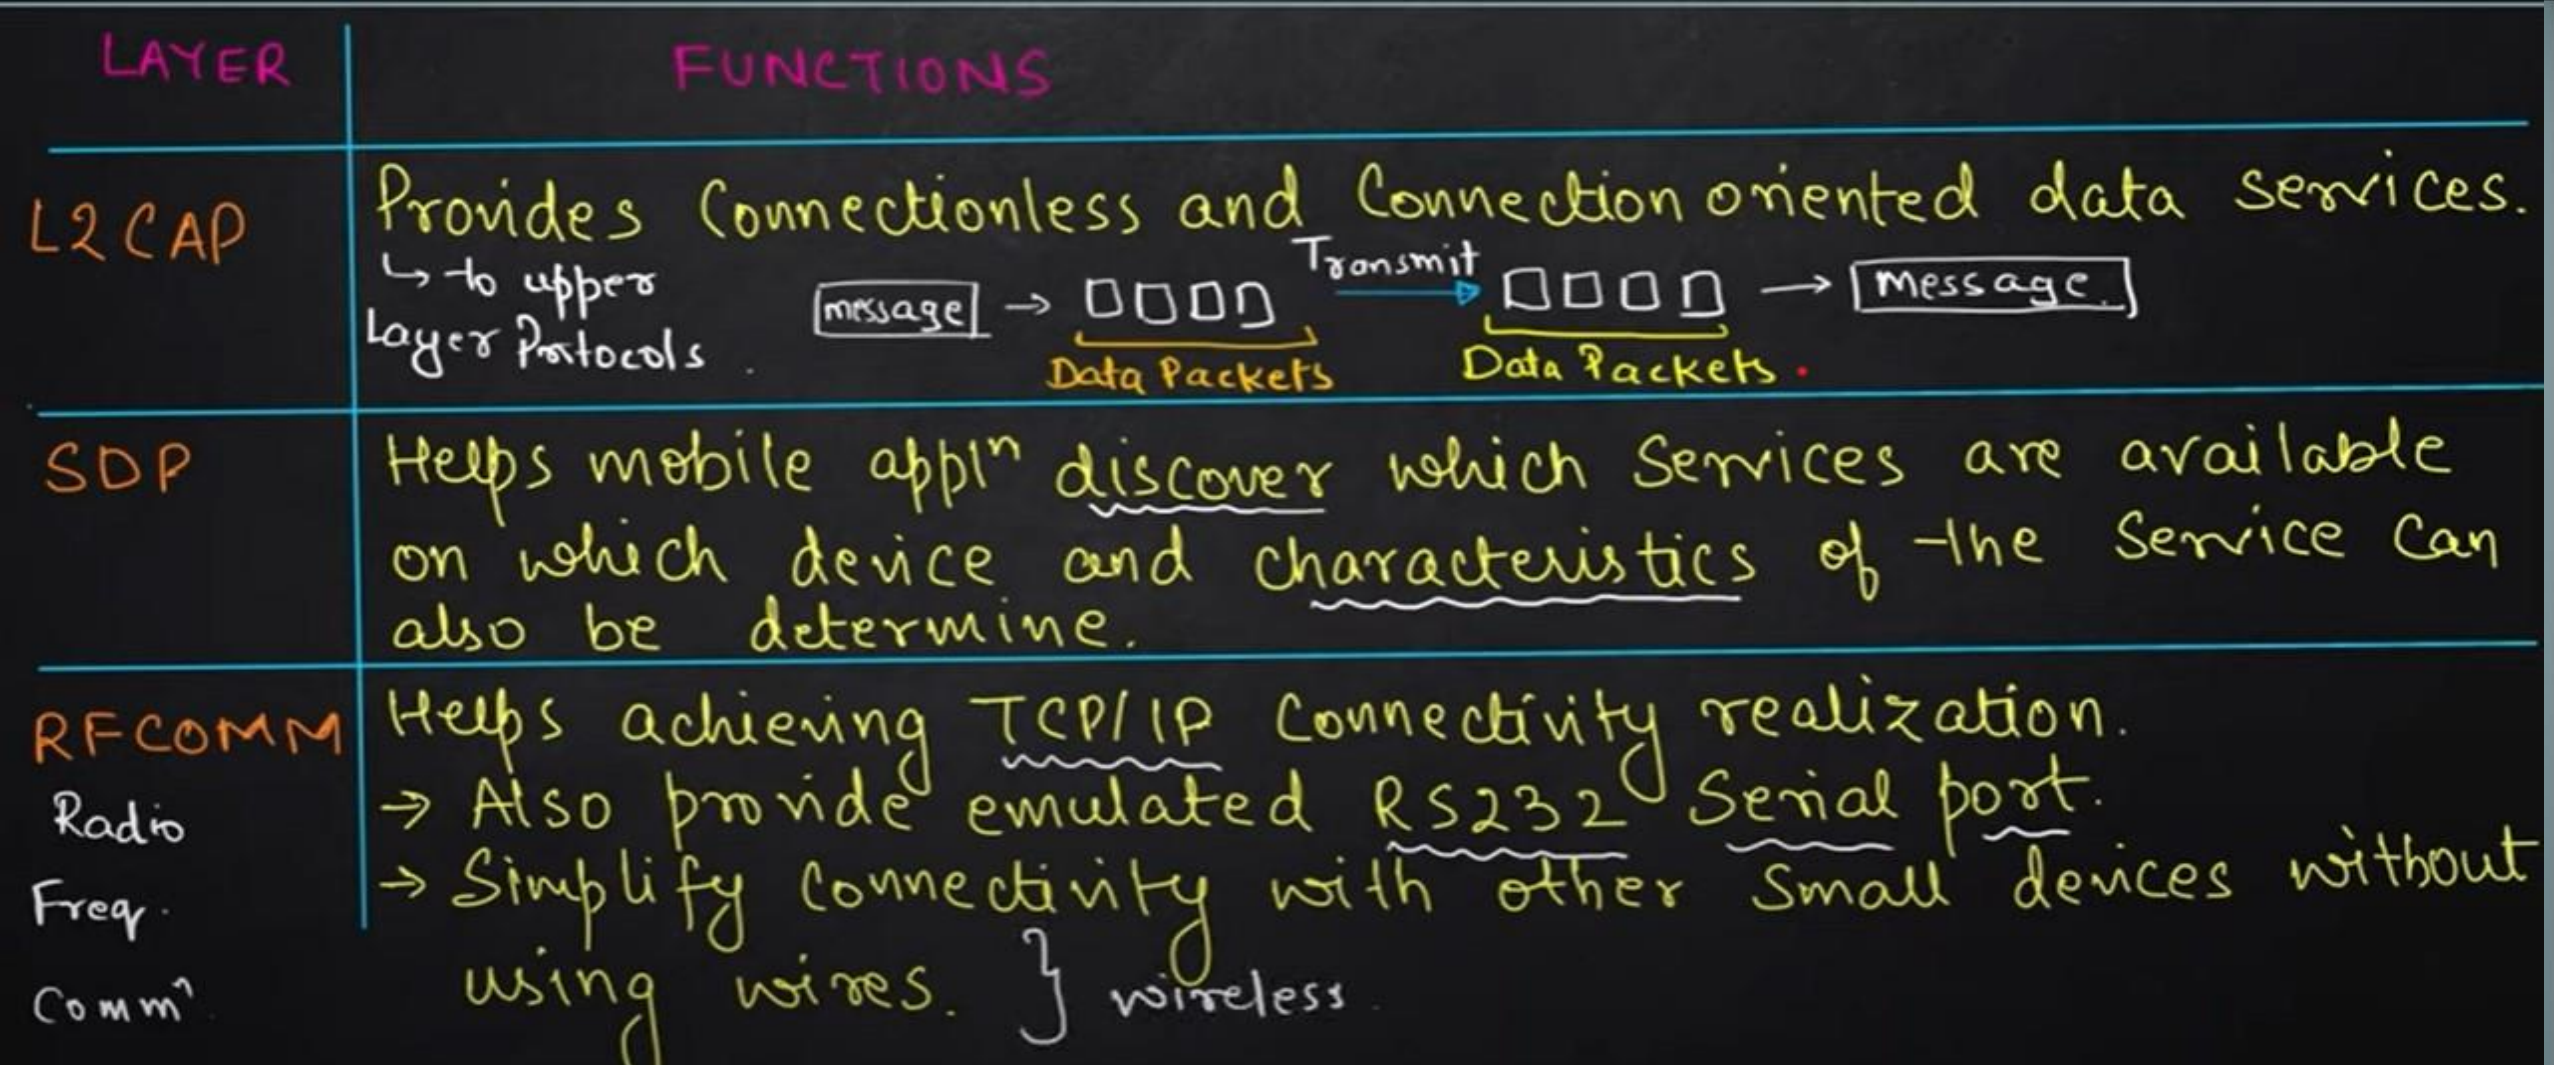 LAYER FUNCTIONS
L2CAP Provides Connectionless and Connection oriented data services.
↳ to upper
Layer Protocols.
message → Transmit → message
Data Packets Data Packets.
SDP Helps mobile applⁿ discover which services are available
on which device and characteristics of the service can
also be determine.
RFCOMM Helps achieving TCP/IP Connectivity realization.
Radio → Also provide emulated RS232 Serial port.
Freq. → Simplify Connectivity with other small devices without
Commⁿ using wires. } wireless.